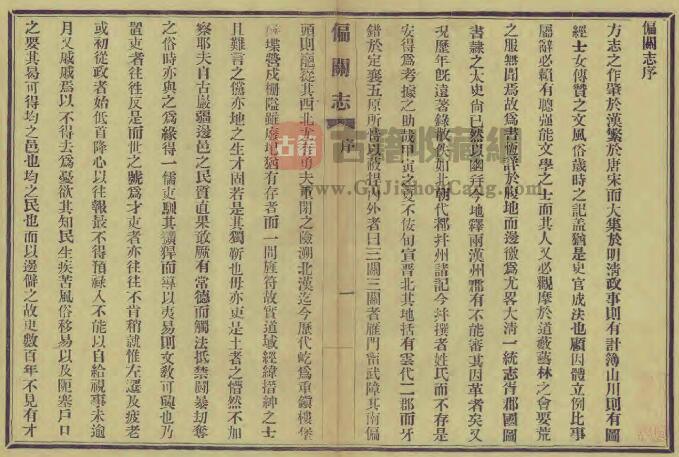 偏關志序
方志之作肇於漢繁於唐宋而大集於明清政事則有計簿山川則有圖
經士女傳贊之文風俗歲時之記蓋猶是史官成法也顧因體立例比事
屬辭必賴有聰強能文學之士而其人又必觀摩於道藪藝林之會要荒
之服無聞焉故爲書恆詳於腹地而邊徼爲尤畧大清一統志省郡國圖
書隸之太史尙已然以幽幷今地釋兩漢州郡有不能審其因革者矣又
況歷年旣遠著錄散佚如北朝代都幷州諸記今幷撰者姓而不存是
安得爲考據之助哉甲寅之夏不佞旬宣晉北其地括有雲代二郡而牙
錯於定襄五原所恃以設捍內外者曰三關三關者雁門甯武障其南偏
偏關志 序 一
頭則巃嵸其西北尤 勇夫重閉之險溯北漢迄今歷代屹爲重鎭樓堡
堞營戍柵隘雖廢址猶有存者而一問旌符故實道域經緯搢紳之士
且難言之儻亦地之生才固若是其獨嶄也毋亦吏是土者之懵然不加
察耶夫自古嚴疆邊邑之民質直果敢厥有常德而觸法抵禁鬬暴劫奪
之俗時亦與之爲緣得一儒吏馴其獷悍而導以夷易則文敎可興也乃
置吏者往往反是而世之號爲才吏者亦往往不肯稍就惟左遷及疲老
或初從政者始低首降心以往報最不得預祿入不能以自給視事未逾
月又戚戚焉以不得去爲憂欲其知民生疾苦風俗移易以及阨塞戶口
之要其易可得均之邑也均之民也而以邊僻之故吏數百年不見有才
古籍
古籍收藏網
www.GuJiShouCang.com